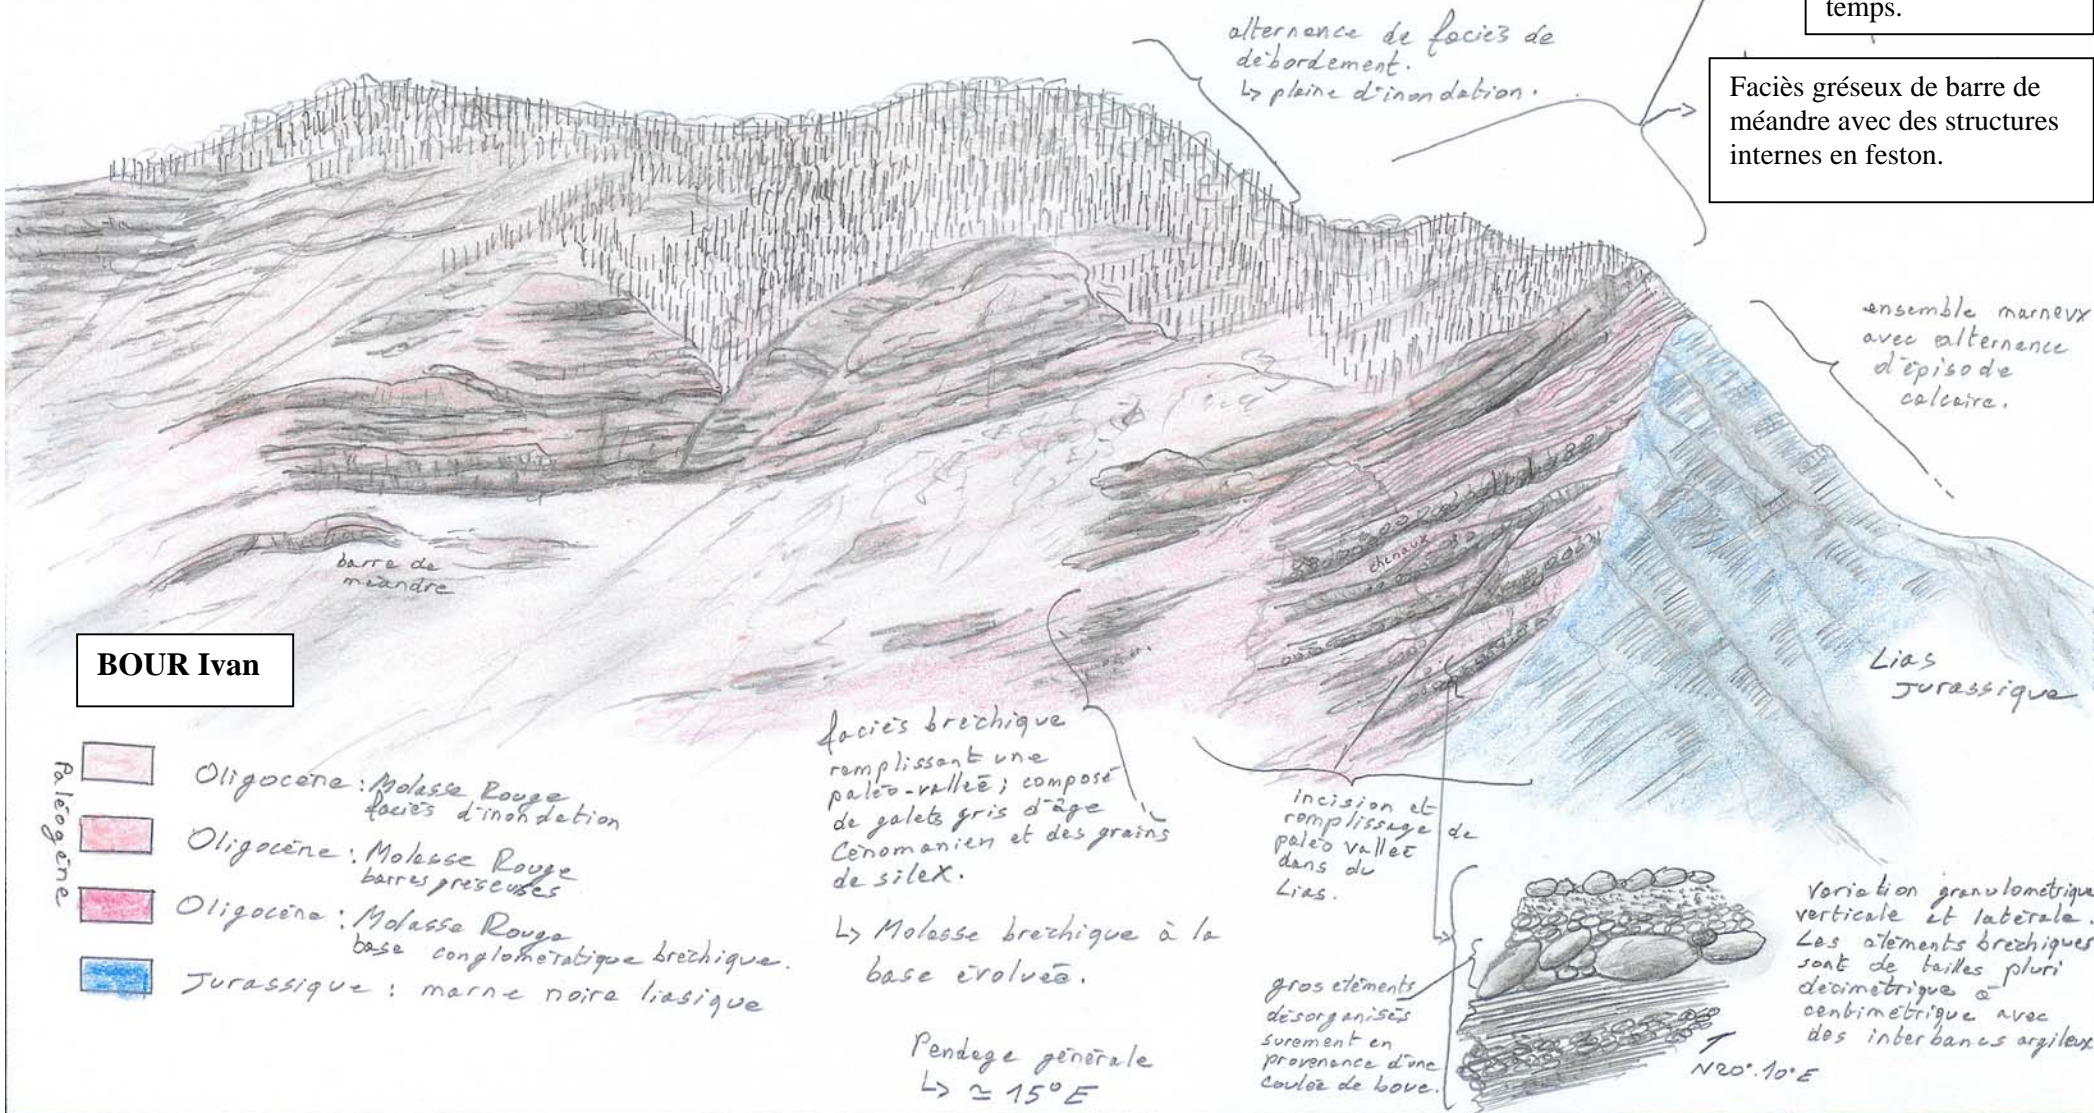 temps.
alternance de faciès de
débordement.
↳ plaine d'inondation.
Faciès gréseux de barre de
méandre avec des structures
internes en feston.
ensemble marneux
avec alternance
d'épisode
calcaire.
chenaux
barre de
méandre
BOUR Ivan
Lias
Jurassique
Paléogène
Oligocène : Molasse Rouge
faciès d'inondation
Oligocène : Molasse Rouge
barres gréseuses
Oligocène : Molasse Rouge
base conglomératique bréchique.
Jurassique : marne noire liasique
faciès bréchique
remplissant une
paléo-vallée ; composé
de galets gris d'âge
Cénomanien et des grains
de silex.
↳ Molasse bréchique à la
base évoluée.
Pendage générale
↳ ≃ 15° E
incision et
remplissage de
paléo vallée
dans du
Lias.
gros éléments
désorganisés
surement en
provenance d'une
coulée de boue.
Variation granulométrique
verticale et latérale.
Les éléments bréchiques
sont de tailles pluri
décimétrique à
centimétrique avec
des interbancs argileux
N20°.10°E